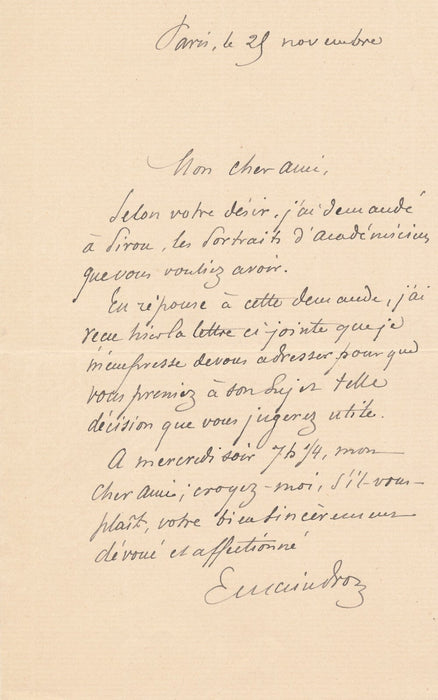 Paris, le 25 novembre
Mon cher ami,
Selon votre désir, j'ai demandé
à Pirou, les Portraits d'Académiciens
que vous vouliez avoir.
En réponse à cette demande, j'ai
reçu hier la lettre ci-jointe que je
m'empresse de vous adresser pour que
vous preniez à son sujet telle
décision que vous jugerez utile.
A mercredi soir 7h 1/4, mon
cher ami; croyez-moi, s'il-vous-
plaît, votre bien sincèrement
dévoué et affectionné
E Maindron